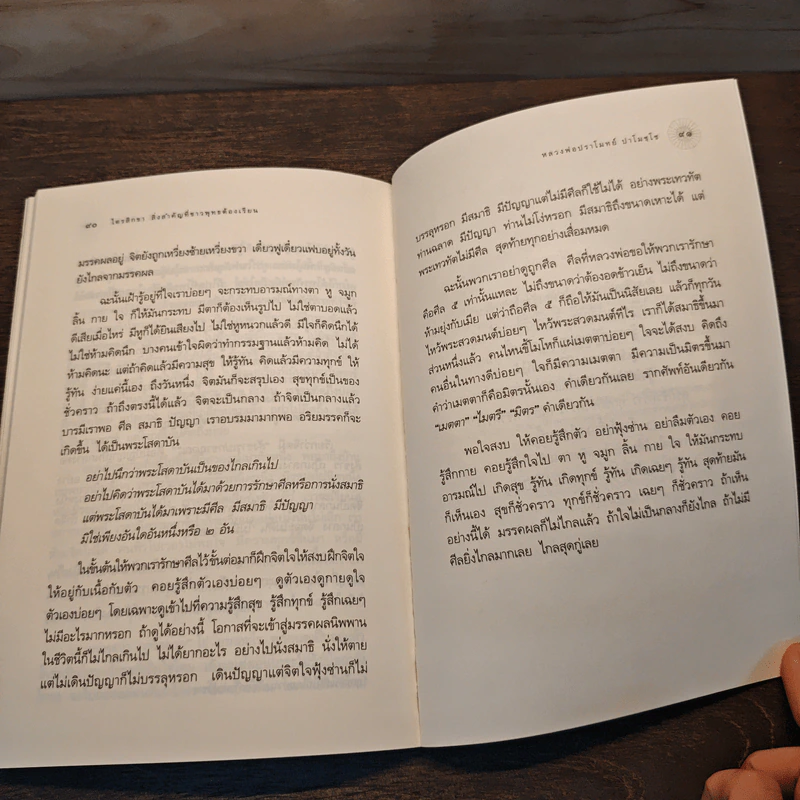 ๙๐ ไตรสิกขา สิ่งสำคัญที่ชาวพุทธต้องเรียน
มรรคผลอยู่ จิตยังถูกเหวี่ยงซ้ายเหวี่ยงขวา เดี๋ยวฟูเดี๋ยวแฟบอยู่ทั้งวัน
ยังไกลจากมรรคผล
ฉะนั้นเฝ้ารู้อยู่ที่ใจเราบ่อยๆ จะกระทบอารมณ์ทางตา หู จมูก
ลิ้น กาย ใจ ก็ให้มันกระทบ มีตาก็ต้องเห็นรูปไป ไม่ใช่ตาบอดแล้ว
ดีเสียเมื่อไหร่ มีหูก็ได้ยินเสียงไป ไม่ใช่หูหนวกแล้วดี มีใจก็คิดนึกได้
ไม่ใช่ห้ามคิดนึก บางคนเข้าใจผิดว่าทำกรรมฐานแล้วห้ามคิด ไม่ได้
ห้ามคิดนะ แต่ถ้าคิดแล้วมีความสุข ให้รู้ทัน คิดแล้วมีความทุกข์ ให้
รู้ทัน ง่ายแค่นี้เอง ถึงวันหนึ่ง จิตมันก็จะสรุปเอง สุขทุกข์เป็นของ
ชั่วคราว ถ้าถึงตรงนี้ได้แล้ว จิตจะเป็นกลาง ถ้าจิตเป็นกลางแล้ว
บารมีเราพอ ศีล สมาธิ ปัญญา เราอบรมมามากพอ อริยมรรคก็จะ
เกิดขึ้น ได้เป็นพระโสดาบัน
อย่าไปนึกว่าพระโสดาบันเป็นของไกลเกินไป
อย่าไปคิดว่าพระโสดาบันได้มาด้วยการรักษาศีลหรือการนั่งสมาธิ
แต่พระโสดาบันได้มาเพราะมีศีล มีสมาธิ มีปัญญา
มิใช่เพียงอันใดอันหนึ่งหรือ ๒ อัน
ในขั้นต้นให้พวกเรารักษาศีลไว้ขั้นต่อมาก็ฝึกจิตใจให้สงบฝึกจิตใจ
ให้อยู่กับเนื้อกับตัว คอยรู้สึกตัวเองบ่อยๆ ดูตัวเองดูกายดูใจ
ตัวเองบ่อยๆ โดยเฉพาะดูเข้าไปที่ความรู้สึกสุข รู้สึกทุกข์ รู้สึกเฉยๆ
ไม่มีอะไรมากหรอก ถ้าดูได้อย่างนี้ โอกาสที่จะเข้าสู่มรรคผลนิพพาน
ในชีวิตนี้ก็ไม่ไกลเกินไป ไม่ได้ยากอะไร อย่างไปนั่งสมาธิ นั่งให้ตาย
แต่ไม่เดินปัญญาก็ไม่บรรลุหรอก เดินปัญญาแต่จิตใจฟุ้งซ่านก็ไม่
หลวงพ่อปราโมทย์ ปาโมชฺโช ๙๑
บรรลุหรอก มีสมาธิ มีปัญญาแต่ไม่มีศีลก็ใช้ไม่ได้ อย่างพระเทวทัต
ท่านฉลาด มีปัญญา ท่านไม่โง่หรอก มีสมาธิถึงขนาดเหาะได้ แต่
พระเทวทัตไม่มีศีล สุดท้ายทุกอย่างเสื่อมหมด
ฉะนั้นพวกเราอย่าดูถูกศีล ศีลที่หลวงพ่อขอให้พวกเรารักษา
คือศีล ๕ เท่านั้นแหละ ไม่ถึงขนาดว่าต้องอดข้าวเย็น ไม่ถึงขนาดว่า
ห้ามยุ่งกับเมีย แต่ว่าถือศีล ๕ ก็ถือให้มันเป็นนิสัยเลย แล้วก็ทุกวัน
ไหว้พระสวดมนต์บ่อยๆ ไหว้พระสวดมนต์ทีไร เราก็ได้สมาธิขึ้นมา
ส่วนหนึ่งแล้ว คนไหนขี้โมโหก็แผ่เมตตาบ่อยๆ ใจจะได้สงบ คิดถึง
คนอื่นในทางดีบ่อยๆ ใจก็มีความเมตตา มีความเป็นมิตรขึ้นมา
คำว่าเมตตาก็คือมิตรนั้นเอง คำเดียวกันเลย รากศัพท์อันเดียวกัน
“เมตตา” “ไมตรี” “มิตร” คำเดียวกัน
พอใจสงบ ให้คอยรู้สึกตัว อย่าฟุ้งซ่าน อย่าลืมตัวเอง คอย
รู้สึกกาย คอยรู้สึกใจไป ตา หู จมูก ลิ้น กาย ใจ ให้มันกระทบ
อารมณ์ไป เกิดสุข รู้ทัน เกิดทุกข์ รู้ทัน เกิดเฉยๆ รู้ทัน สุดท้ายมัน
ก็เห็นเอง สุขก็ชั่วคราว ทุกข์ก็ชั่วคราว เฉยๆ ก็ชั่วคราว ถ้าเห็น
อย่างนี้ได้ มรรคผลก็ไม่ไกลแล้ว ถ้าใจไม่เป็นกลางก็ยังไกล ถ้าไม่มี
ศีลยิ่งไกลมากเลย ไกลสุดกู่เลย